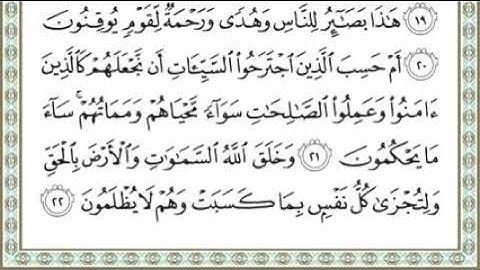 ١٩ هَٰذَا بَصَٰٓئِرُ لِلنَّاسِ وَهُدًى وَرَحْمَةٌ لِّقَوْمٍ يُوقِنُونَ
٢٠ أَمْ حَسِبَ ٱلَّذِينَ ٱجْتَرَحُوا۟ ٱلسَّيِّـَٔاتِ أَن نَّجْعَلَهُمْ كَٱلَّذِينَ
ءَامَنُوا۟ وَعَمِلُوا۟ ٱلصَّٰلِحَٰتِ سَوَآءً مَّحْيَاهُمْ وَمَمَاتُهُمْ ۚ سَآءَ
مَا يَحْكُمُونَ ٢١ وَخَلَقَ ٱللَّهُ ٱلسَّمَٰوَٰتِ وَٱلْأَرْضَ بِٱلْحَقِّ
وَلِتُجْزَىٰ كُلُّ نَفْسٍۭ بِمَا كَسَبَتْ وَهُمْ لَا يُظْلَمُونَ ٢٢